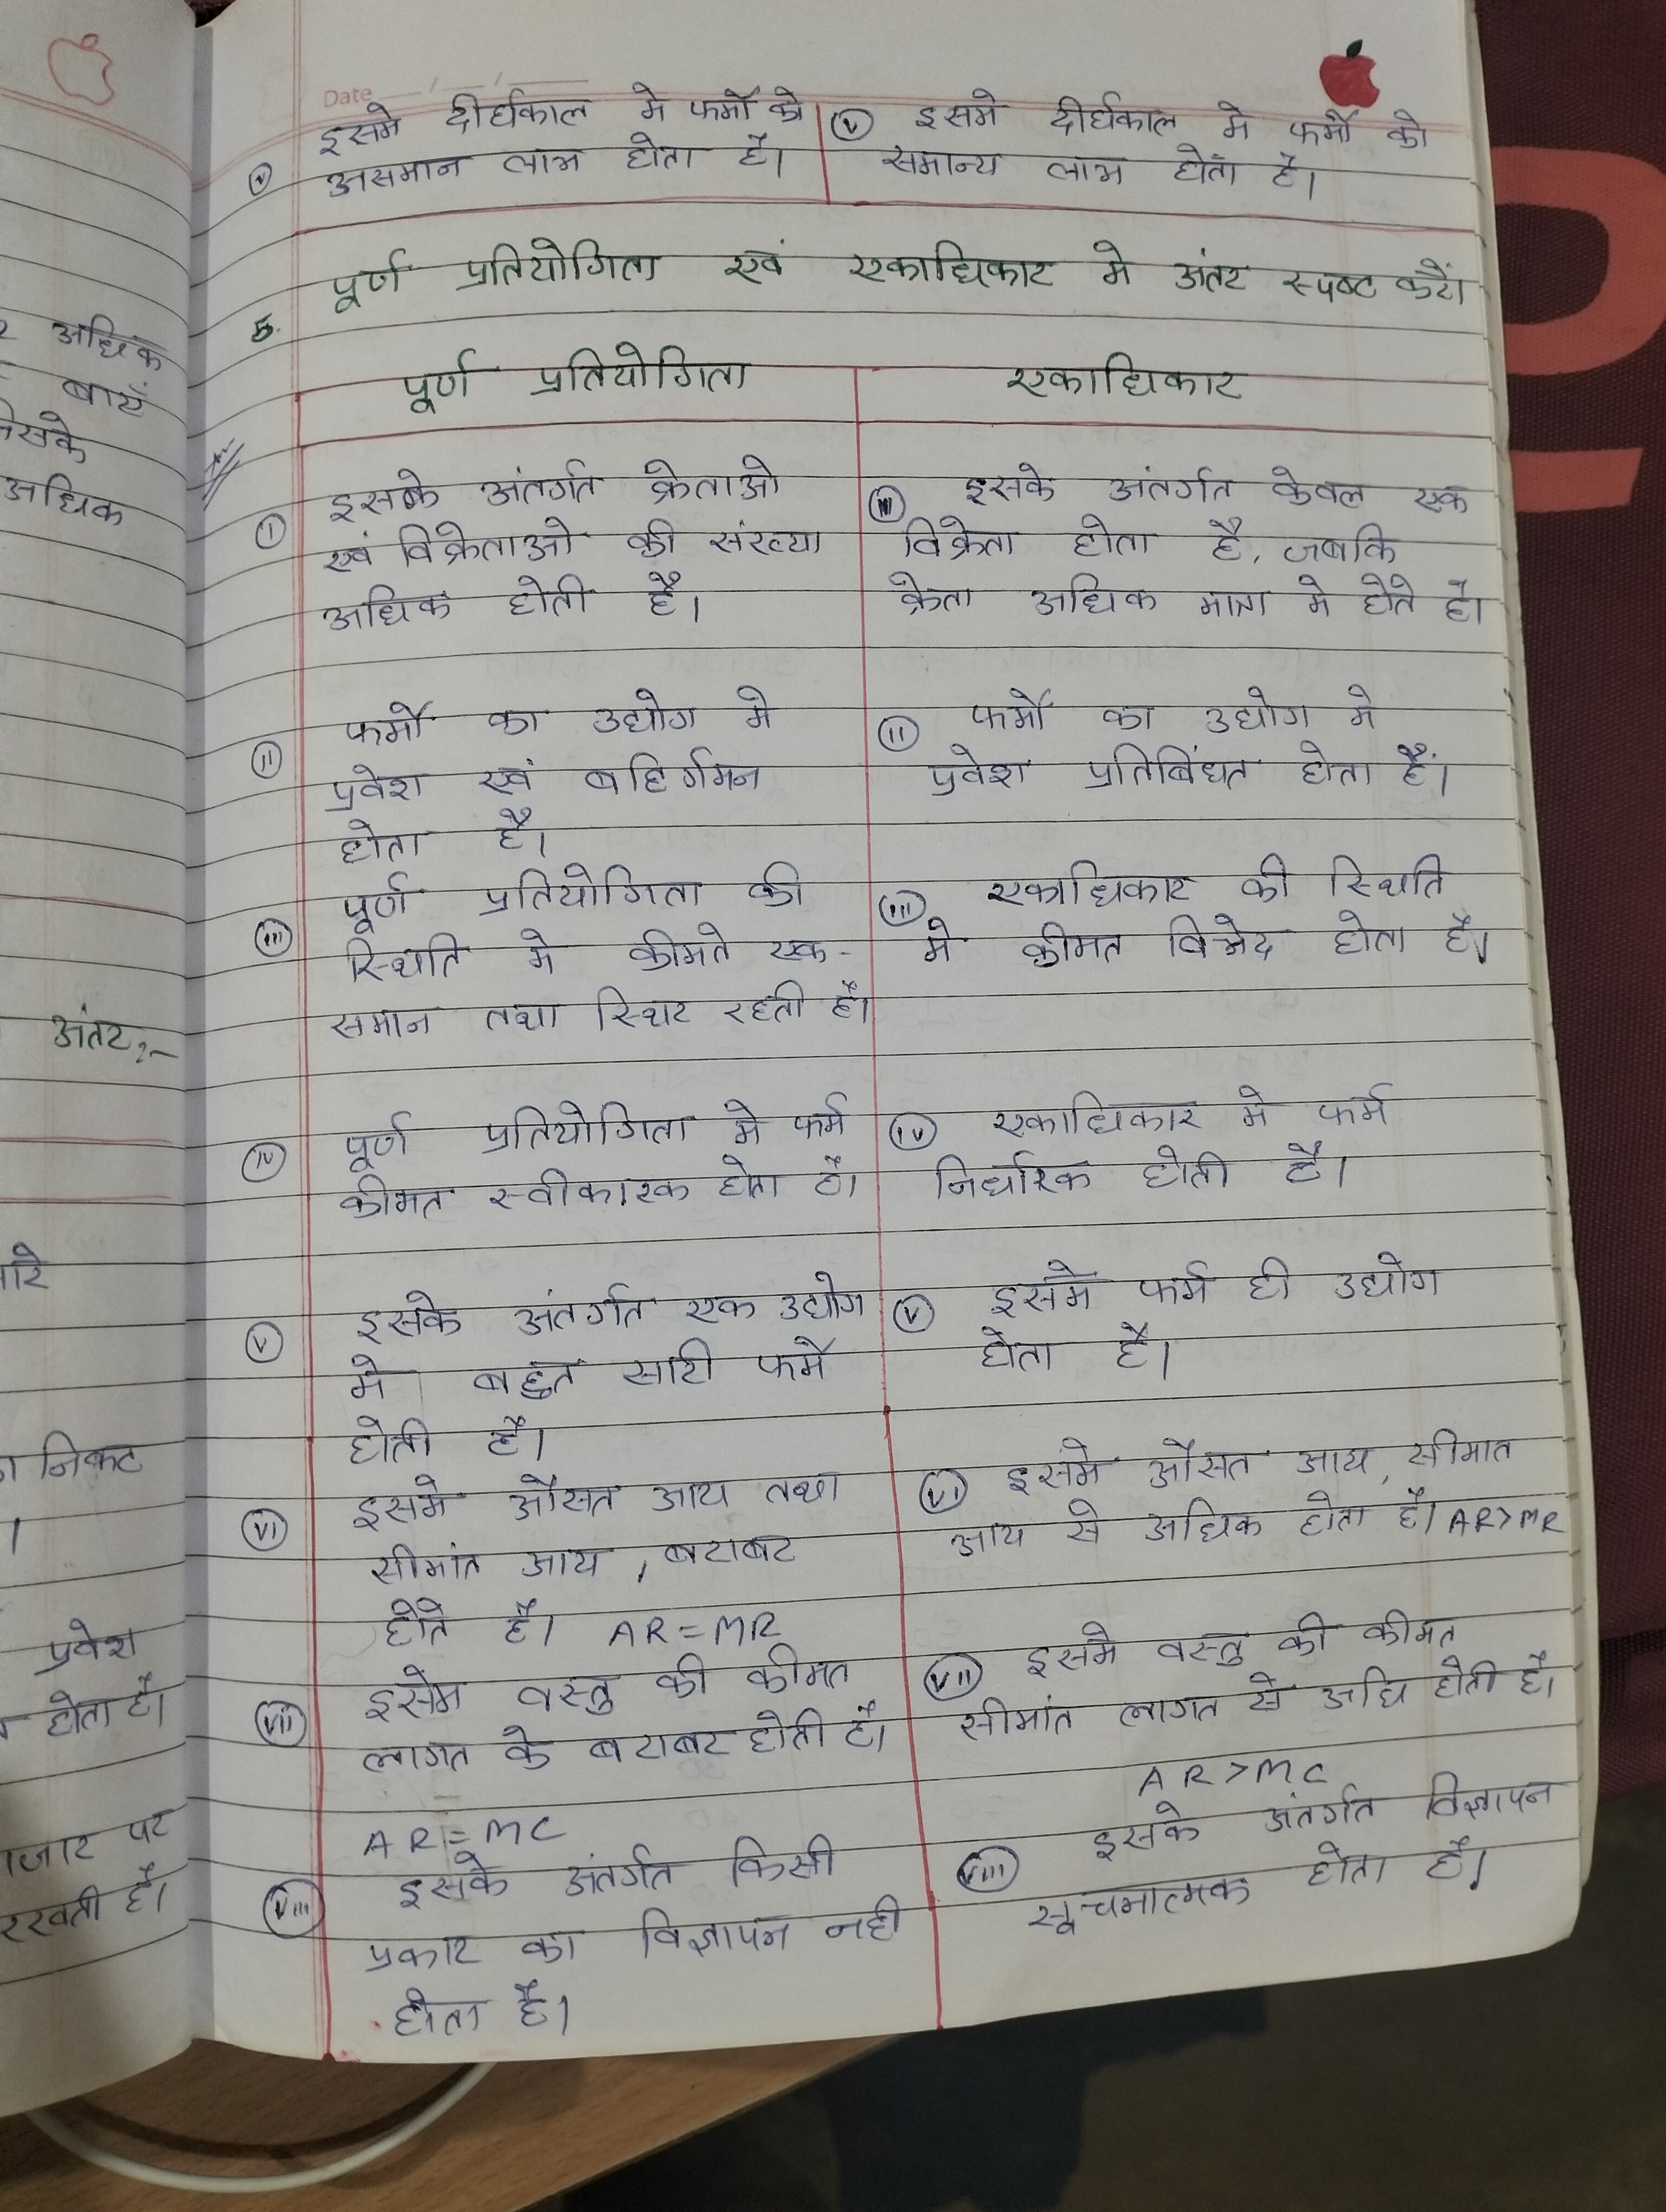 Date
इसमे दीर्घकाल मे फर्मो को
(v) असमान लाभ होता है।
(v) इसमे दीर्घकाल मे फर्मो को
समान्य लाभ होता है।
5. पूर्ण प्रतियोगिता एवं एकाधिकार मे अंतर स्पष्ट करें।
पूर्ण प्रतियोगिता
एकाधिकार
(i) इसके अंतर्गत क्रेताओ
एवं विक्रेताओ की संख्या
अधिक होती है।
इसके अंतर्गत केवल एक
विक्रेता होता है, जबकि
क्रेता अधिक मात्रा मे होते है।
(ii) फर्मो का उद्योग मे
प्रवेश एवं बहिर्गमन
होता है।
(ii) फर्मो का उद्योग मे
प्रवेश प्रतिबिंधत होता है।
(iii) पूर्ण प्रतियोगिता की
स्थिति मे कीमते एक-
समान तथा स्थिर रहती है।
(iii) एकाधिकार की स्थिति
मे कीमत विभेद होता है।
(iv) पूर्ण प्रतियोगिता मे फर्म
कीमत स्वीकारक होता है।
(iv) एकाधिकार मे फर्म
निर्धारक होती है।
(v) इसके अंतर्गत एक उद्योग
मे बहुत सारी फर्मे
होती है।
(v) इसमे फर्म ही उद्योग
होता है।
(vi) इसमे औसत आय तथा
सीमांत आय, बराबर
होते है। AR=MR
(vi) इसमे औसत आय, सीमात
आय से अधिक होता है। AR>MR
(vii) इसमे वस्तु की कीमत
लागत के बराबर होती है।
AR=MC
(vii) इसमे वस्तु की कीमत
सीमांत लागत से अधि होती है।
AR>MC
(viii) इसके अंतर्गत किसी
प्रकार का विज्ञापन नही
होता है।
(viii) इसके अंतर्गत विज्ञापन
सूचनात्मक होता है।
अधिक
बाएँ
अधिक
अंतर:-
निकट
प्रवेश
होता है।
पर
रखती है।